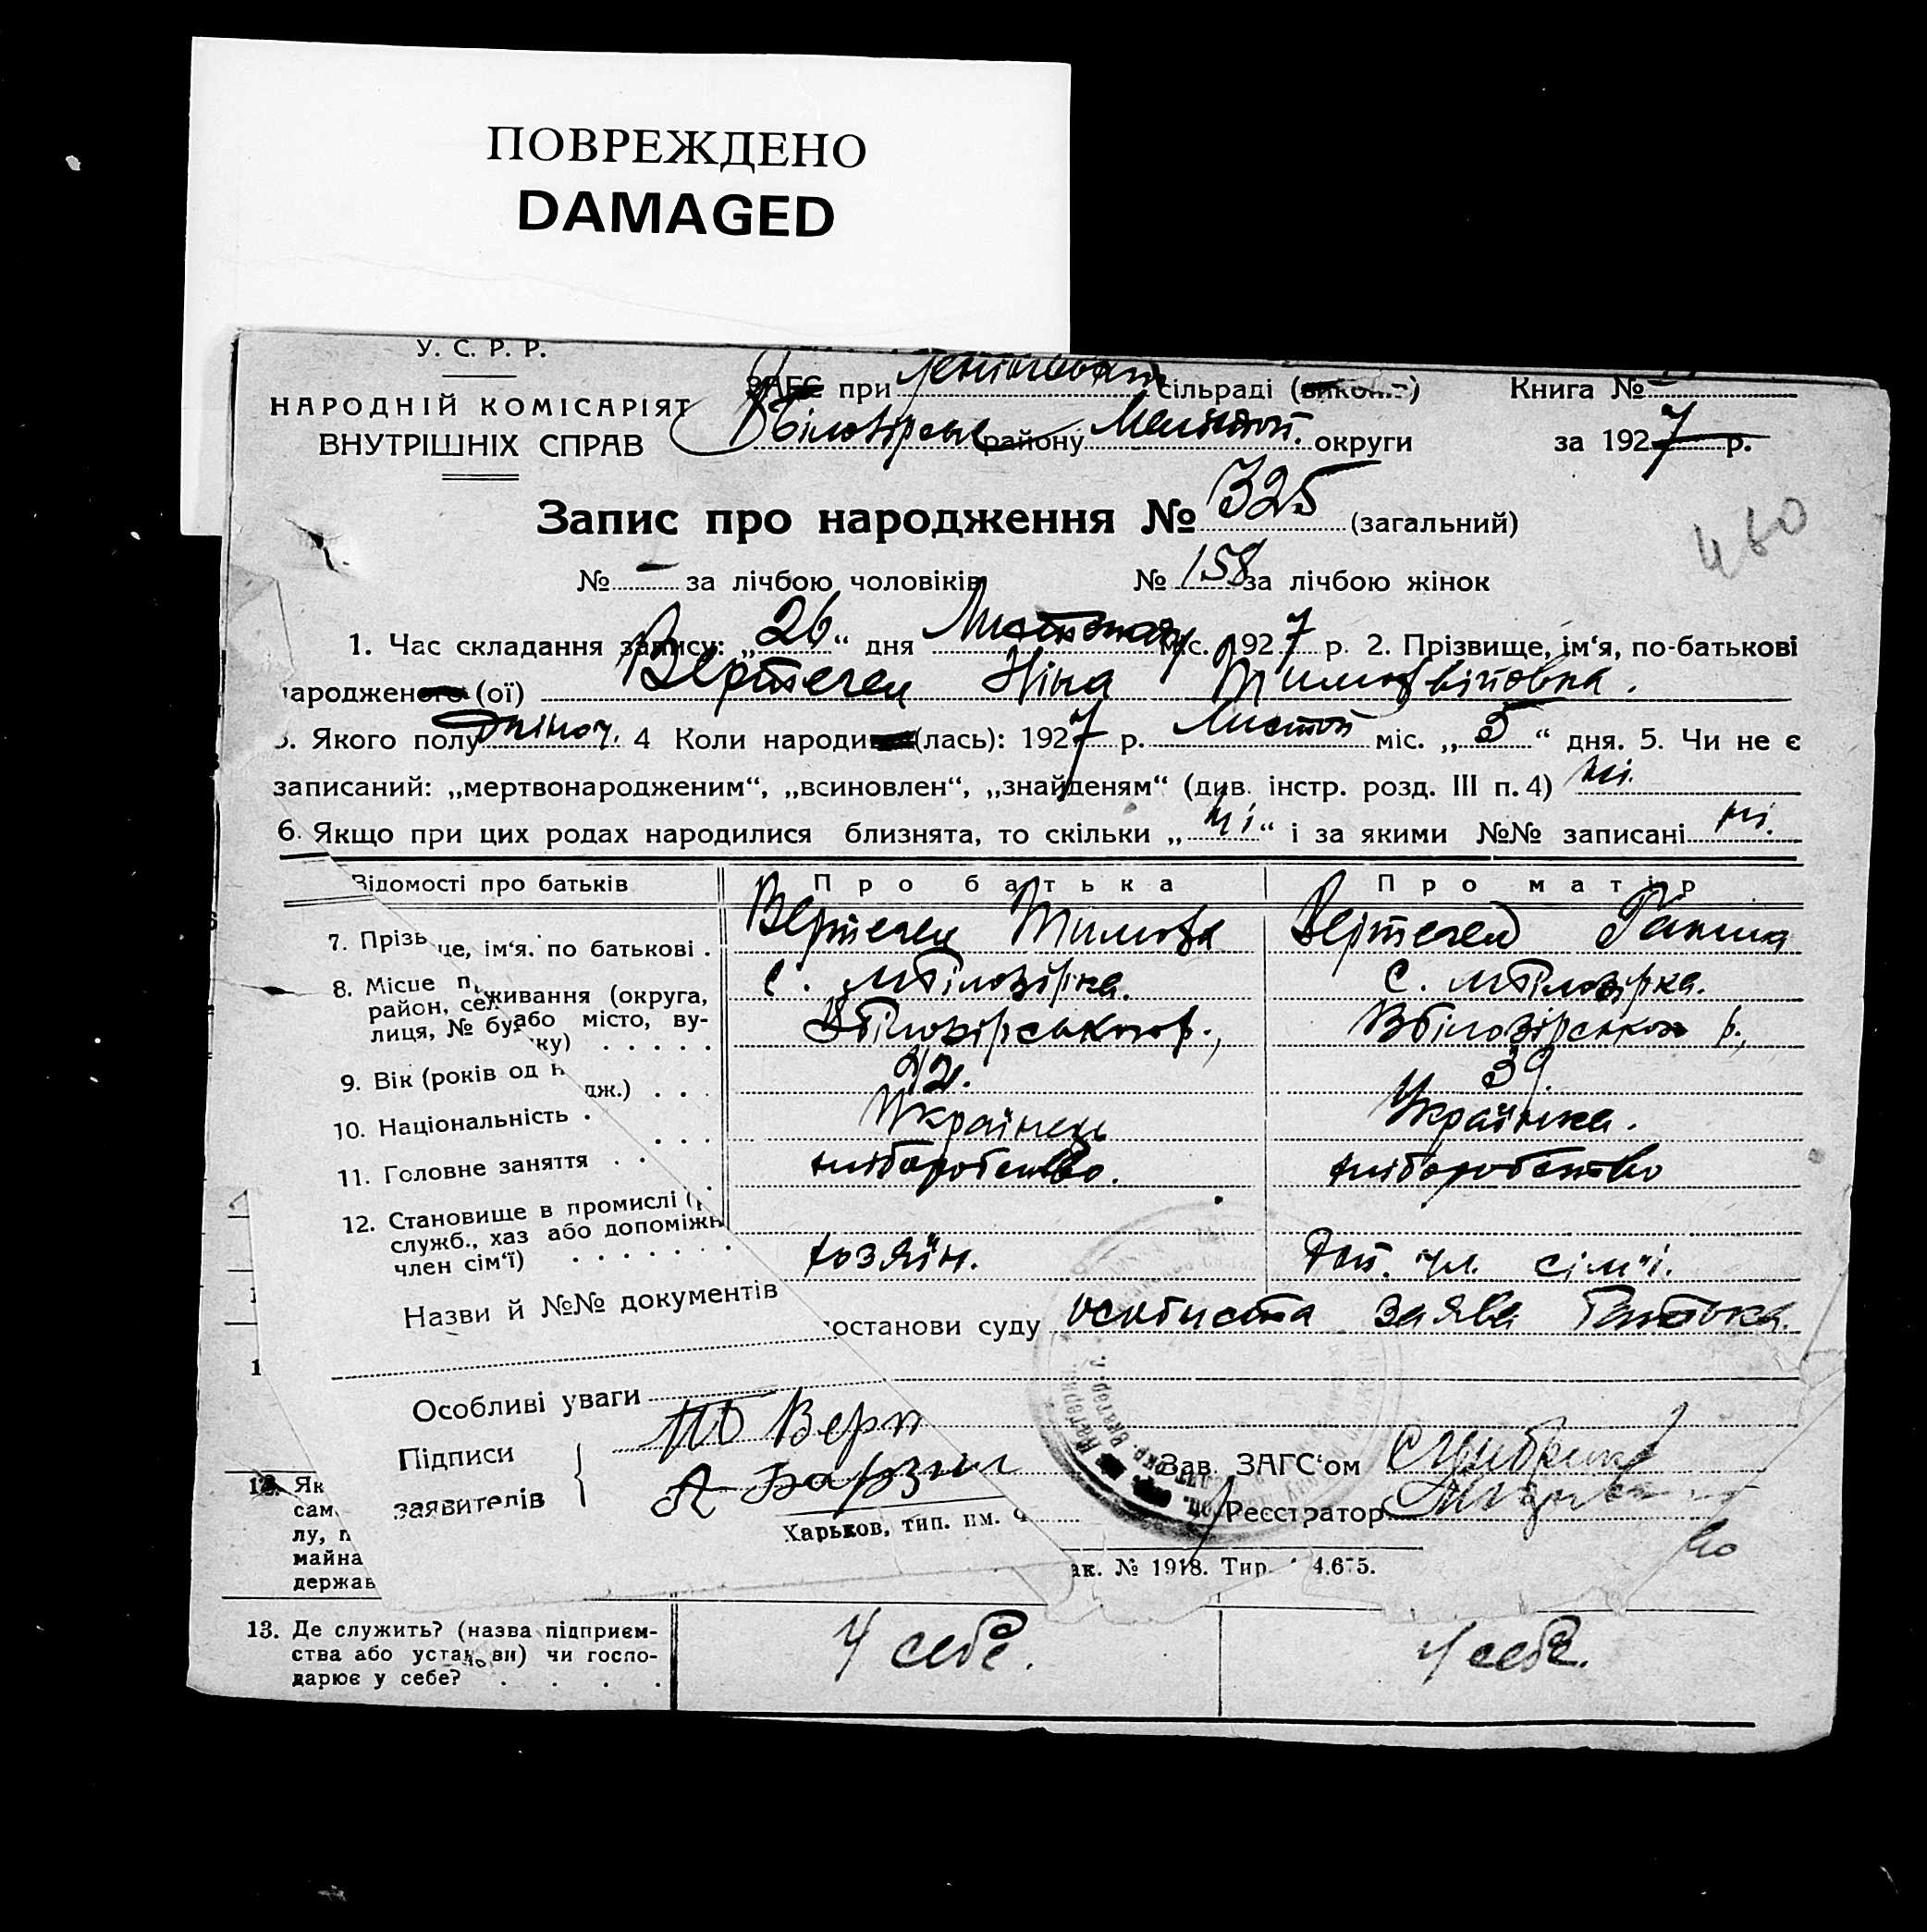 ПОВРЕЖДЕНО
DAMAGED
У. С. Р. Р.
НАРОДНІЙ КОМІСАРІЯТ
ВНУТРІШНІХ СПРАВ
ЗАГС при сільраді Книга №
району Мелітоп. округи за 1927 р.
Запис про народження № 325 (загальний)
460
№ – за лічбою чоловіків № 158 за лічбою жінок
1. Час складання запису: „26“ дня міс. 1927 р. 2. Прізвище, ім‘я, по-батькові
народженого (ої) Вертегел Ніна
3. Якого полу жіноч. 4 Коли народи (лась): 1927 р. Листоп міс. „5“ дня. 5. Чи не є
записаний: „мертвонародженим“, „всиновлен“, „знайденям“ (див. інстр. розд. III п. 4) ні.
6. Якщо при цих родах народилися близнята, то скільки „ні“ і за якими №№ записані ні.
Відомості про батьків Про батька Про матір
7. Прізв це, ім‘я. по батькові . Вертегел Тимофа Вертегел Ганна
8. Місце п живання (округа, с. МБілозірка. с. МБілозірка.
район, сел або місто, ву- ВБілозірського р., ВБілозірського р.,
лиця, № бу ку) . . . . .
9. Вік (років од н дж.) . . . 42. 39.
10. Національність . . . . Українець Українка.
11. Головне заняття . . . хліборобство. хліборобство
12. Становище в промислі
служб., хаз або допоміжн
член сім‘ї) . . . . . . . хозяїн. Доп. чл. сім‘ї.
Назви й №№ документів останови суду особиста заява батька.
Особливі уваги
Підписи Верт
заявителів
Зав. ЗАГС‘ом
Реєстратор
Харьков, тип. им. ак. № 1918. Тир. 4.675.
12. Як
сам
лу, п
майна
держав
13. Де служить? (назва підприєм- У себе. У себе.
ства або установи) чи госпо-
дарює у себе? . . . .